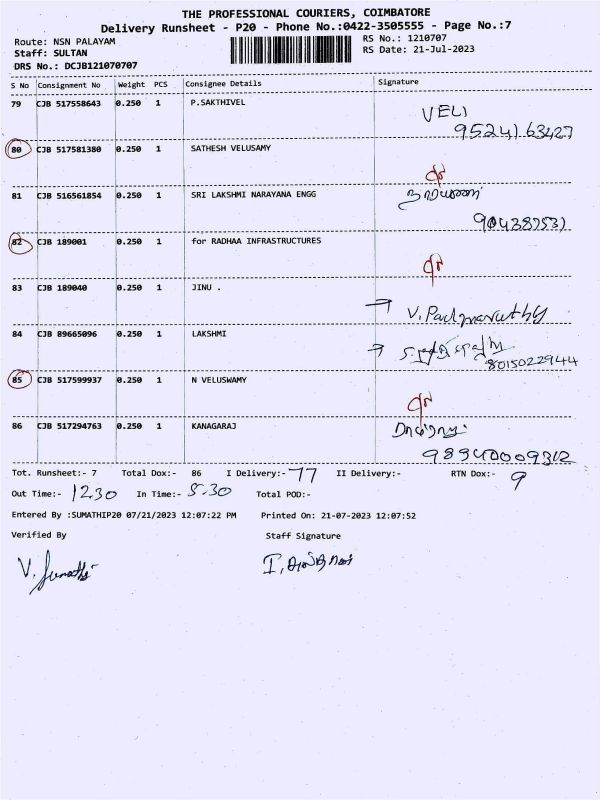 THE PROFESSIONAL COURIERS, COIMBATORE
Delivery Runsheet - P20 - Phone No.:0422-3505555 - Page No.:7
Route: NSN PALAYAM RS No.: 1210707
Staff: SULTAN RS Date: 21-Jul-2023
DRS No.: DCJB121070707
S No Consignment No Weight PCS Consignee Details Signature
79 CJB 517558643 0.250 1 P.SAKTHIVEL VELI
9524163427
80 CJB 517581380 0.250 1 SATHESH VELUSAMY
81 CJB 516561854 0.250 1 SRI LAKSHMI NARAYANA ENGG
82 CJB 189001 0.250 1 for RADHAA INFRASTRUCTURES
83 CJB 189040 0.250 1 JINU .
V. Padmavathy
84 CJB 89665096 0.250 1 LAKSHMI
8015022944
85 CJB 517599937 0.250 1 N VELUSWAMY
86 CJB 517294763 0.250 1 KANAGARAJ
Tot. Runsheet:- 7 Total Dox:- 86 I Delivery:- 77 II Delivery:- RTN Dox:- 9
Out Time:- 12.30 In Time:- 5.30 Total POD:-
Entered By :SUMATHIP20 07/21/2023 12:07:22 PM Printed On: 21-07-2023 12:07:52
Verified By Staff Signature
V. Sumathi